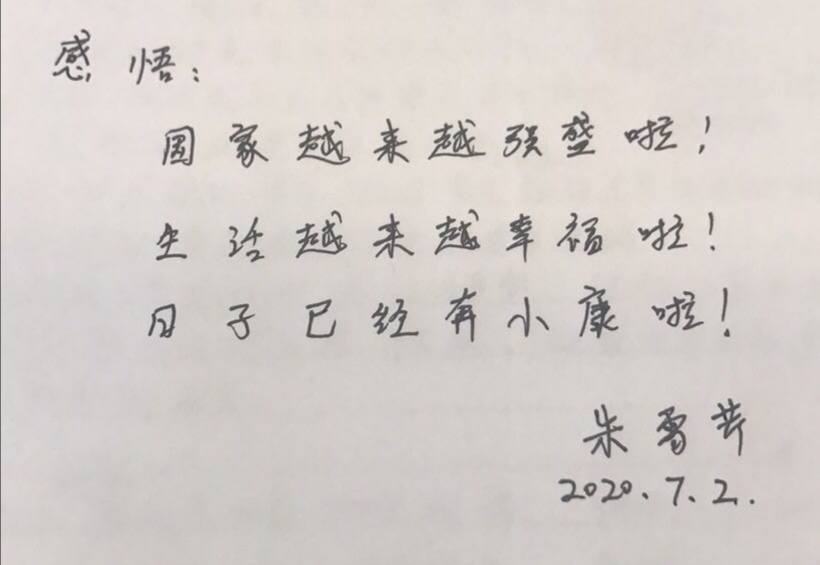 感悟：
国家越来越强盛啦！
生活越来越幸福啦！
日子已经奔小康啦！
朱雪芹
2020.7.2.